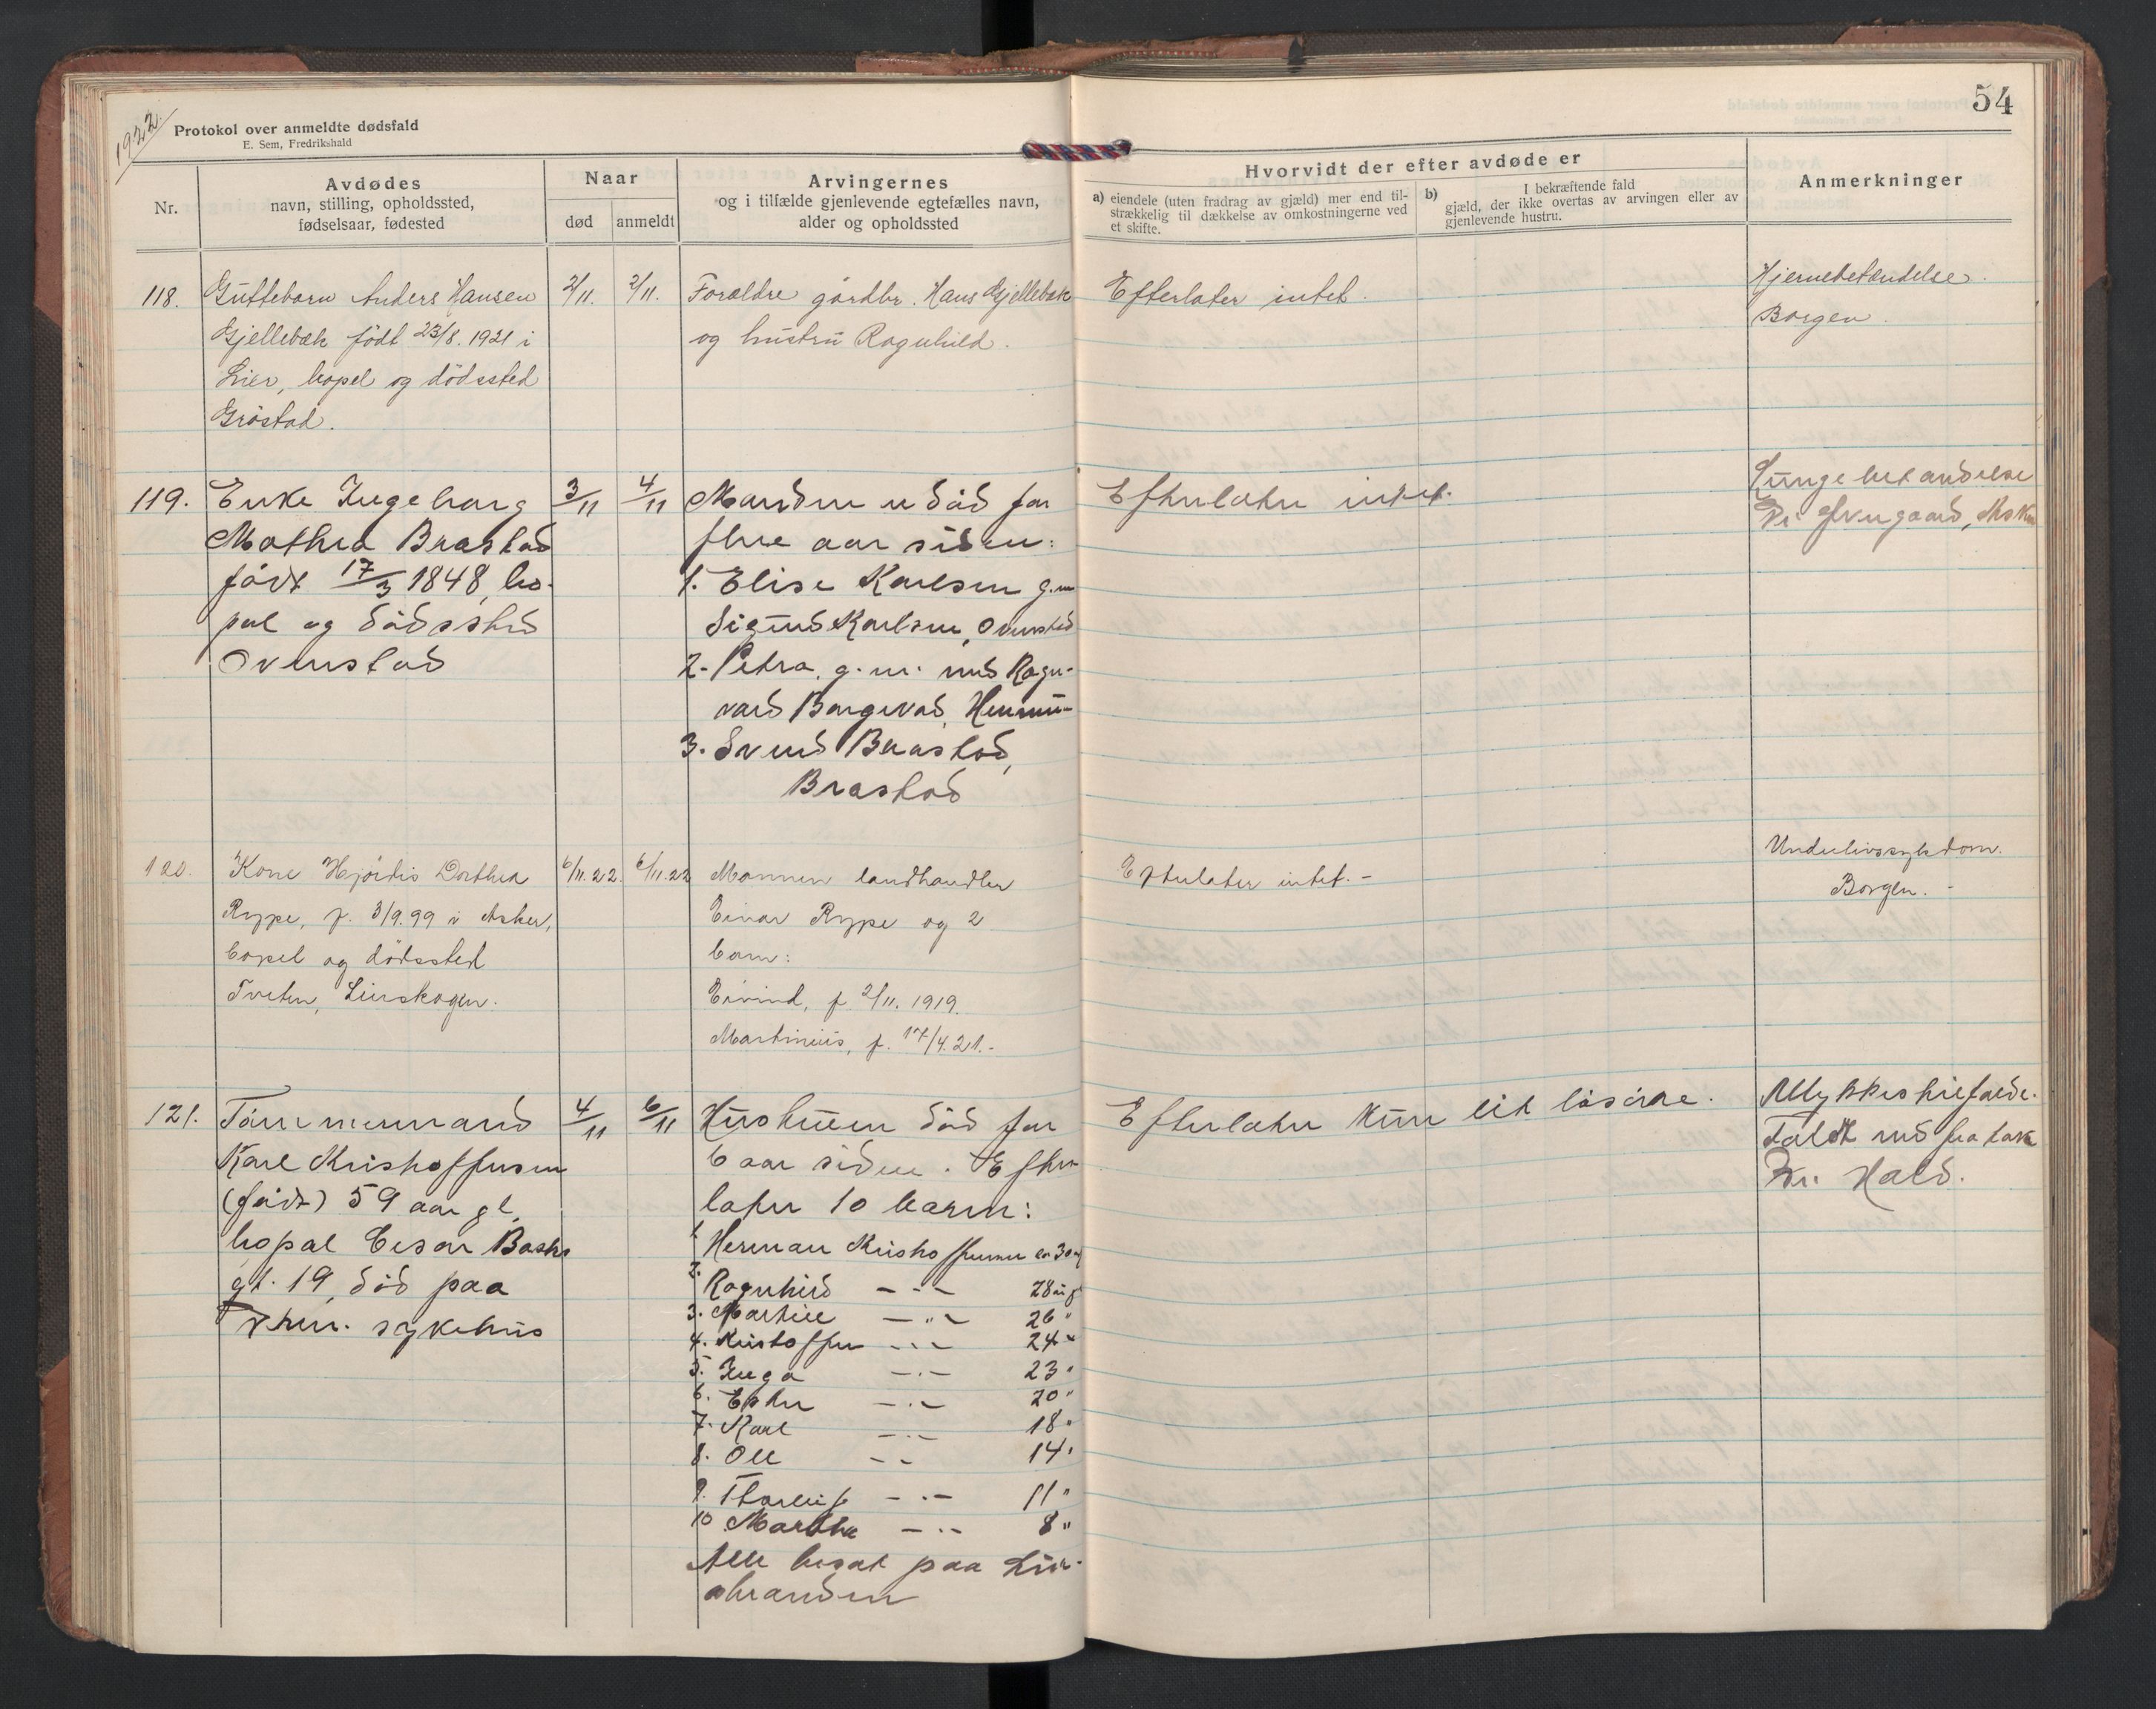 1922.
Protokol over anmeldte dødsfald
E. Sem, Fredrikshald
54
Nr.
Avdødes
navn, stilling, opholdssted,
fødselsaar, fødested
Naar
død
anmeldt
Arvingernes
og i tilfælde gjenlevende egtefælles navn,
alder og opholdssted
Hvorvidt der efter avdøde er
a) eiendele (uten fradrag av gjæld) mer end til-
strækkelig til dækkelse av omkostningerne ved
et skifte.
b) I bekræftende fald
gjæld, der ikke overtas av arvingen eller av
gjenlevende hustru.
Anmerkninger
118.
Guttebarn Anders Hansen
Gjellebæk født 23/8. 1921 i
Lier, bopel og dödssted
Gröstad.
2/11.
2/11.
Forældre gårdbr. Hans Gjellebæk
og hustru Ragnhild.
Efterlater intet.
Hjernebetændelse.
Borgen.
119.
Enke Ingeborg
Mathea Brastad
født 17/3 1848, bo-
pæl og dödssted
Ovenstad
3/11
4/11
Manden er död for
flere aar siden:
1. Elise Karlsen g.m
Sigurd Karlsen, Ovenstad
2. Petra, g. m. med Ragn-
vard Borgevad,
3. Svend Brastad,
Brastad
Efterlater intet.
Lungebetændelse
Dr.
120.
Kone Hjördis Dorthea
Rype, f. 3/9.99 i Asker,
bopel og dödssted
Tveten, Lierskogen.
6/11.22.
6/11.22
Mannen landhandler
Einar Rype og 2
barn:
Eivind, f. 2/11. 1919.
Martinius, f. 17/4.21.-
Efterlater intet.-
Underlivssykdom.
Borgen.-
121.
Tömmermand
Karl Kristoffersen
(født) 59 aar gl.
bopæl
gt. 19, död paa
Dr.men. sykehus
4/11
6/11
Hustruen död for
6 aar siden. Efter-
later 10 barn:
1. Herman Kristoffersen ca 30
2. Ragnhild - " - 28
3. Martin - " - 26 "
4. Kristoffer - " - 24 "
5. Inga - " - 23 "
6. Ester - " - 20 "
7. Karl - " - 18 "
8. Ole - " - 14 "
9. Thorleif - " - 11 "
10 Martha - " - 8 "
Alle bosat paa Lier-
stranden
Efterlater kun lit lösöre.
Ulykkestilfælde.
Faldt ned fra tak
Dr. Hald.